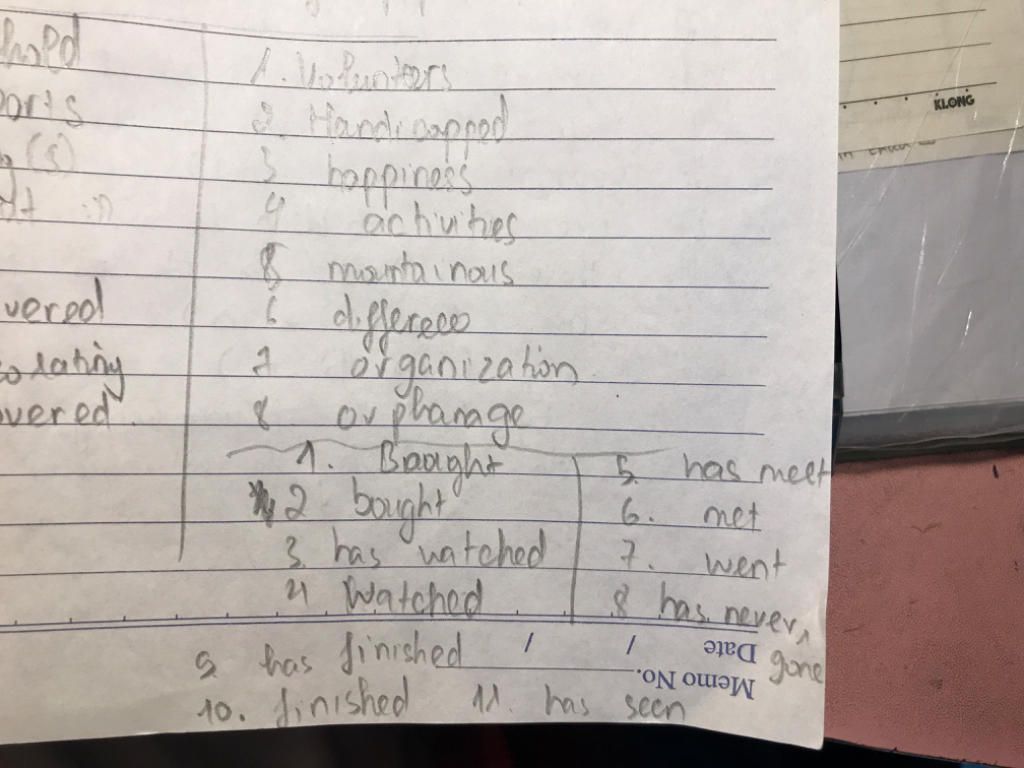 1. Volunters
2. Handicapped
3 happiness
4 activities
5 mountainous
6 differece
7 organization
8 orphanage
vered
vered
1. Baught
2 bought
3. has watched
4 Watched
5. has meet
6. met
7. went
8 has never gone
9 has finished
10. finished 11. has seen
Date / /
Memo No.
KLONG